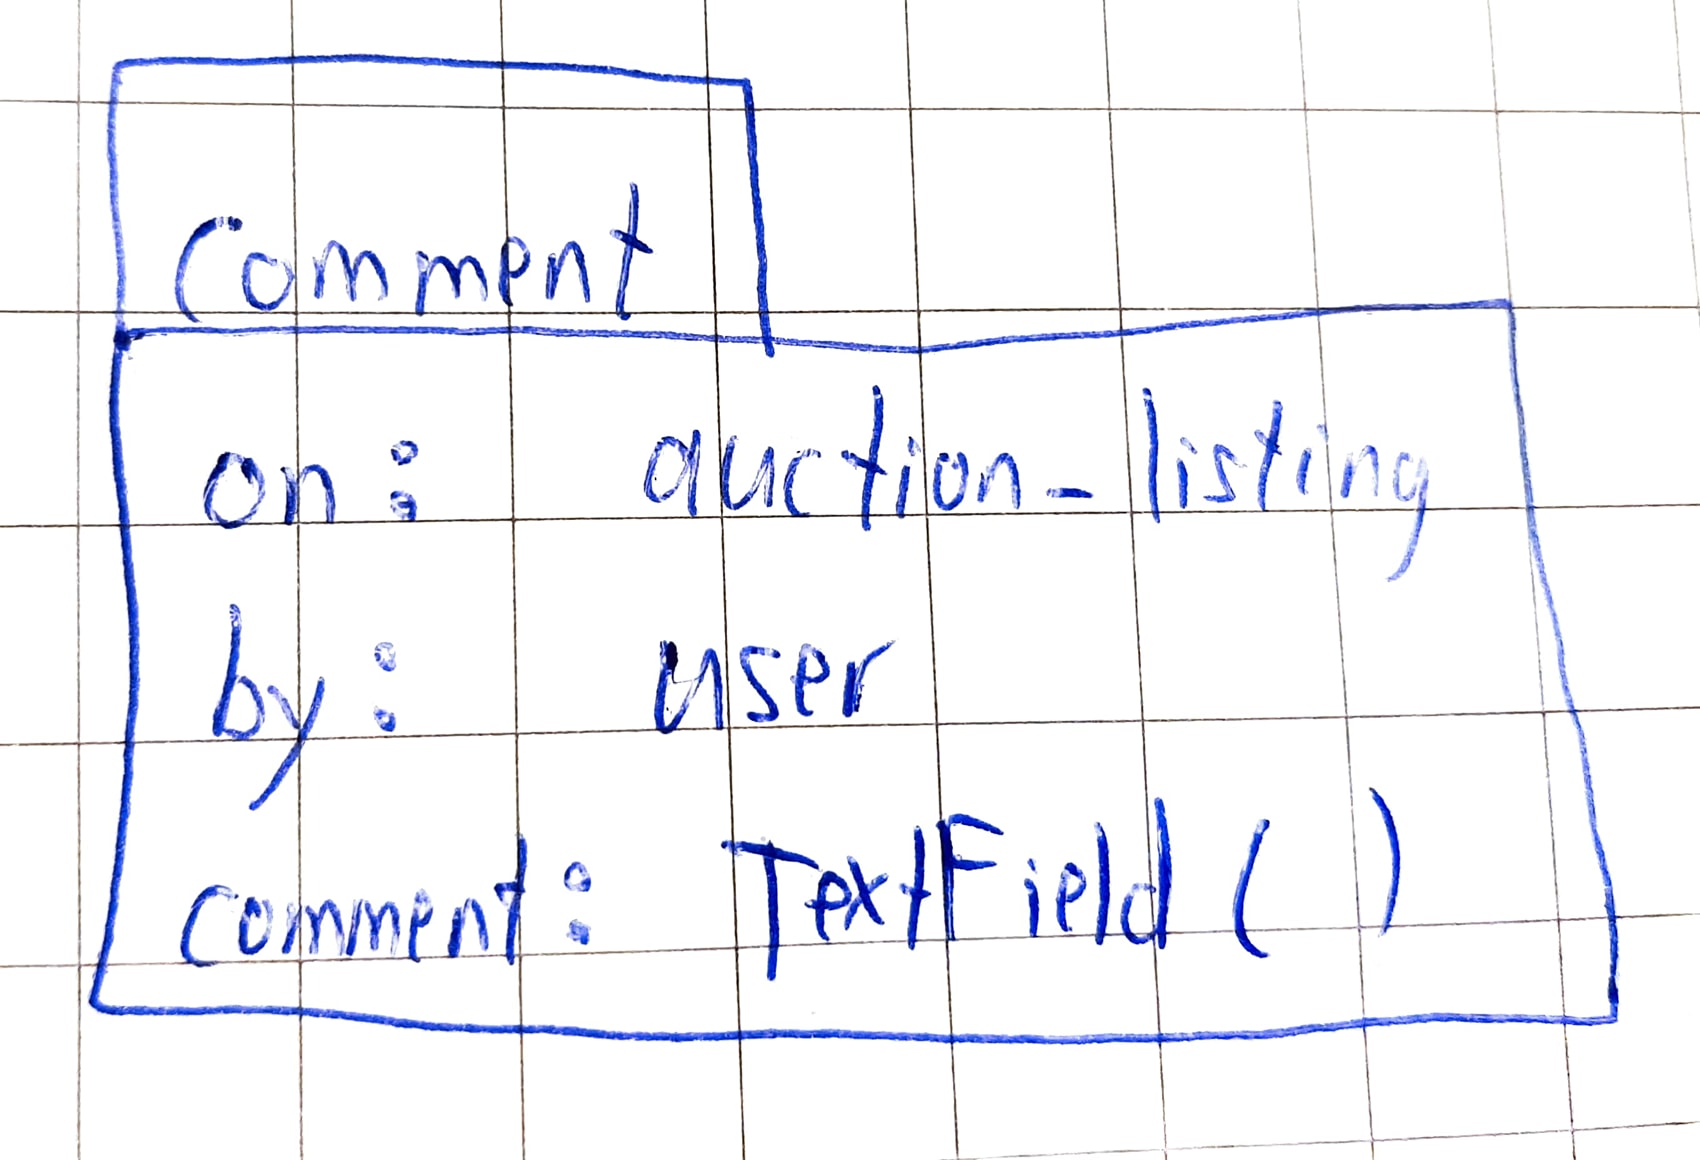 Comment
on: auction_listing
by: user
comment: TextField( )